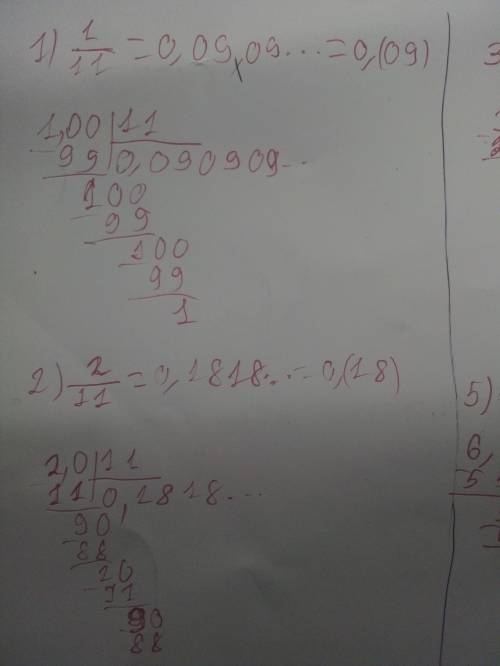 1) 1/11 = 0,09,09... = 0,(09)
1,00 | 11
99 | 0,090909...
100
99
100
99
1
2) 2/11 = 0,1818... = 0,(18)
2,0 | 11
11 | 0,1818...
90
88
20
11
90
88
5)
6,
5